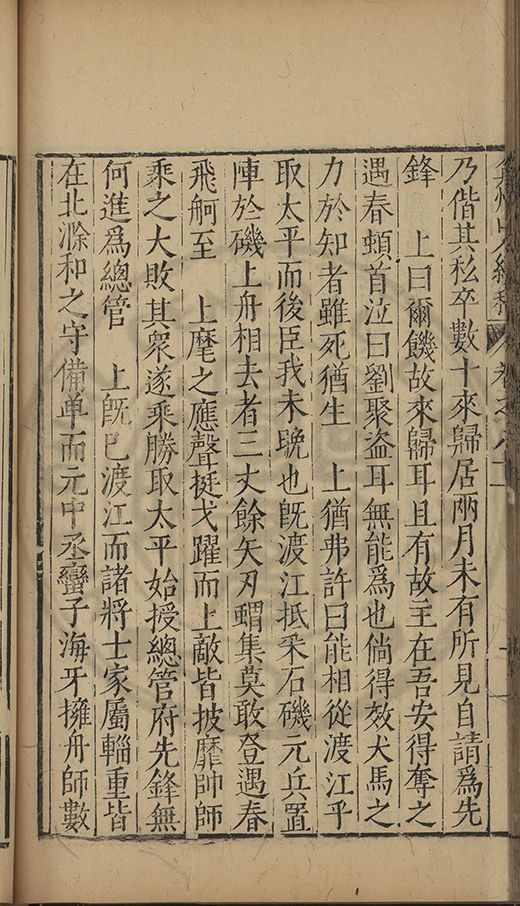 弇州史料 卷之八二
乃偕其私卒數十來歸居兩月未有所見自請爲先
鋒　上曰爾饑故來歸耳且有故主在吾安得奪之
遇春頓首泣曰劉聚盗耳無能爲也倘得效犬馬之
力於知者雖死猶生　上猶弗許曰能相從渡江乎
取太平而後臣我未晚也旣渡江抵采石磯元兵置
陣於磯上舟相去者三丈餘矢刃蝟集莫敢登遇春
飛舸至　上麾之應聲挺戈躍而上敵皆披靡帥師
乘之大敗其衆遂乘勝取太平始授總管府先鋒無
何進爲總管　上旣已渡江而諸將士家屬輜重皆
在北滁和之守備单而元中丞蠻子海牙擁舟師數